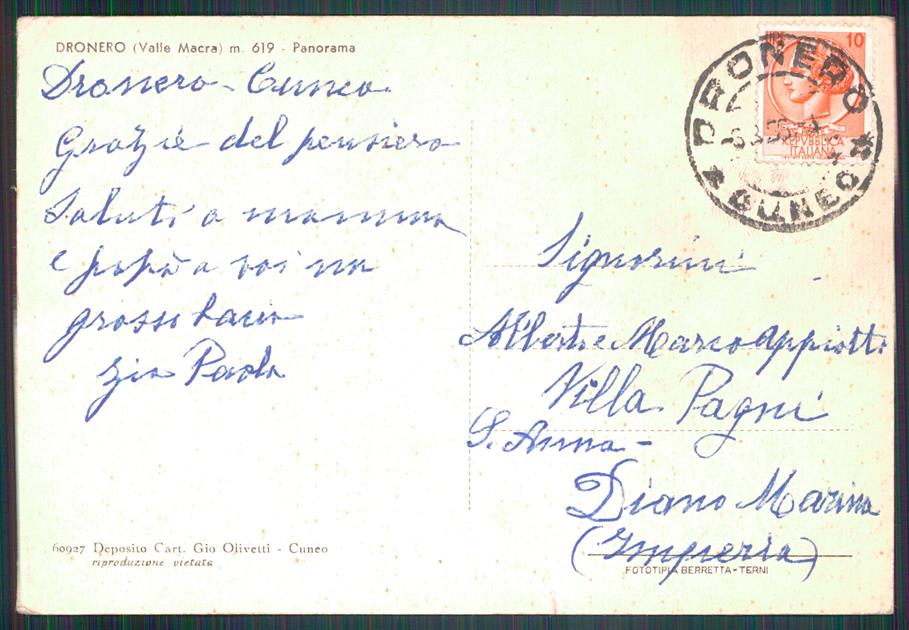 DRONERO (Valle Macra) m. 619 - Panorama
Dronero - Cuneo
Grazie del pensiero
Saluti a mamma
e papà a voi un
grosso bacio
zia Paola
60927 Deposito Cart. Gio Olivetti - Cuneo
riproduzione vietata
10
REPVBBLICA
ITALIANA
DRONERO
* CUNEO *
Signorini
Alberto e Marco Appiotti
Villa Pagni
S. Anna -
Diano Marina
(Imperia)
FOTOTIPIA BERRETTA - TERNI